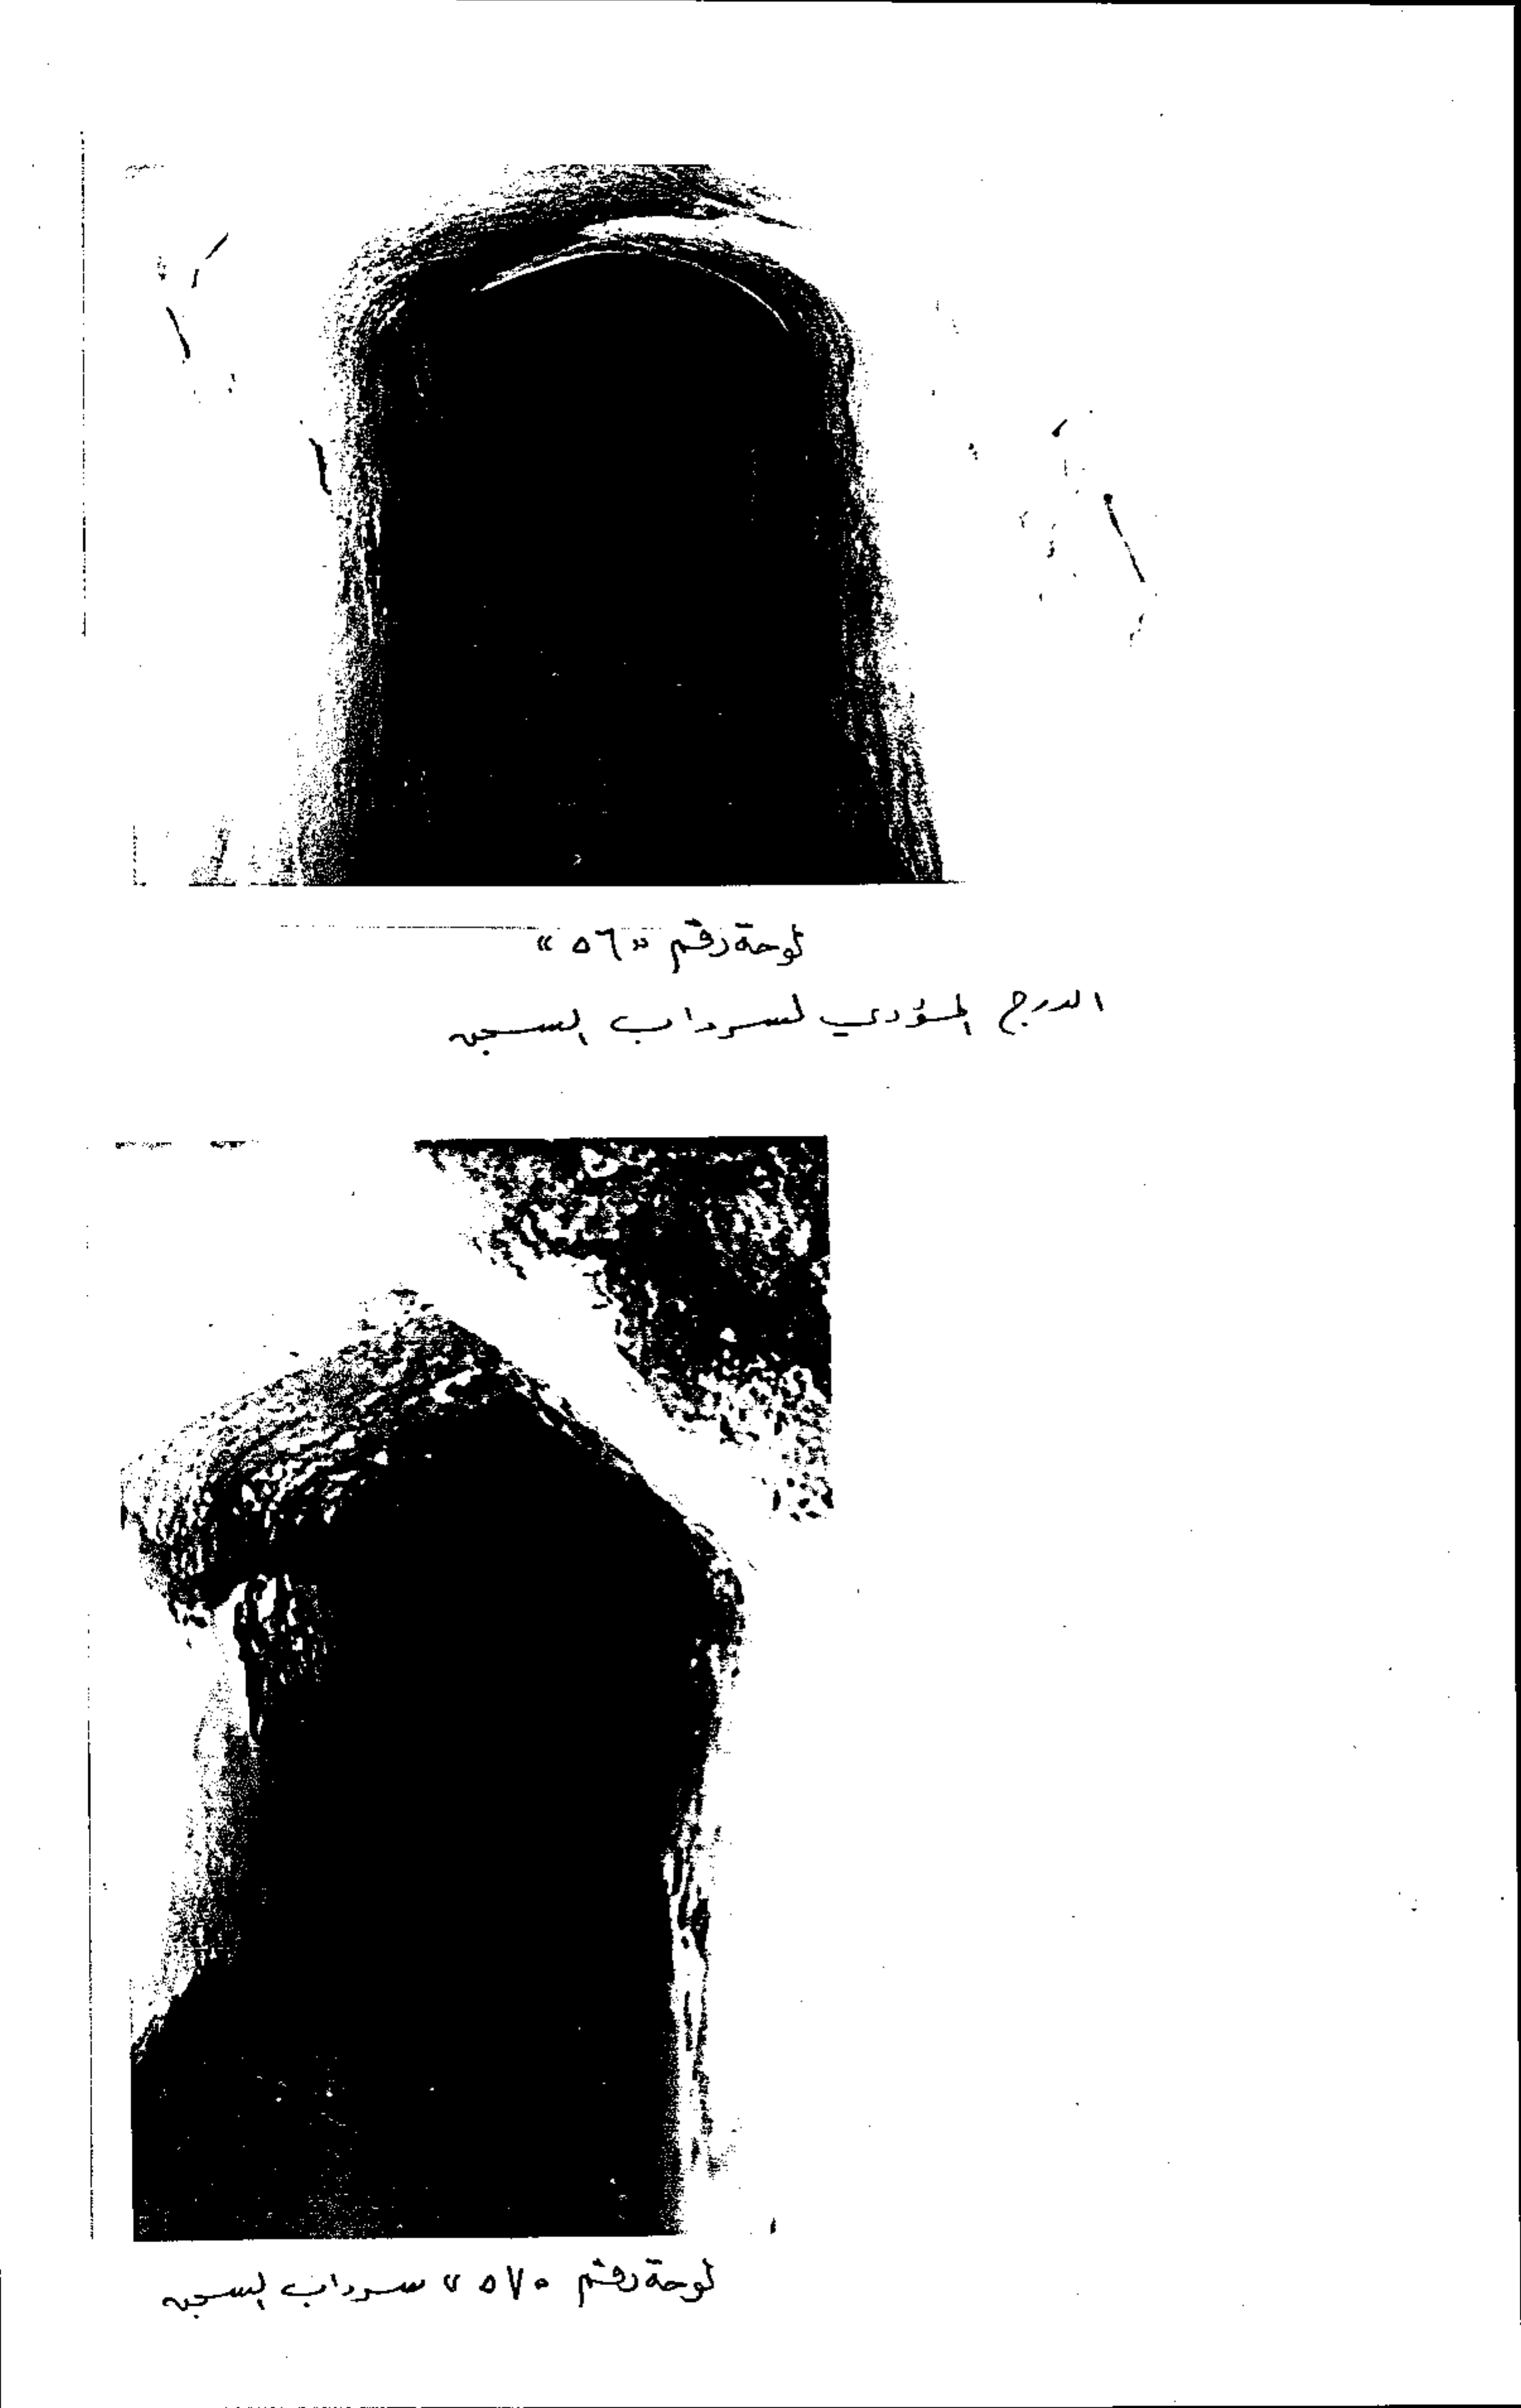 لوحة رقم «٥٦»
الدرج المؤدي لسرداب السجن
لوحة رقم «٥٧» سرداب السجن